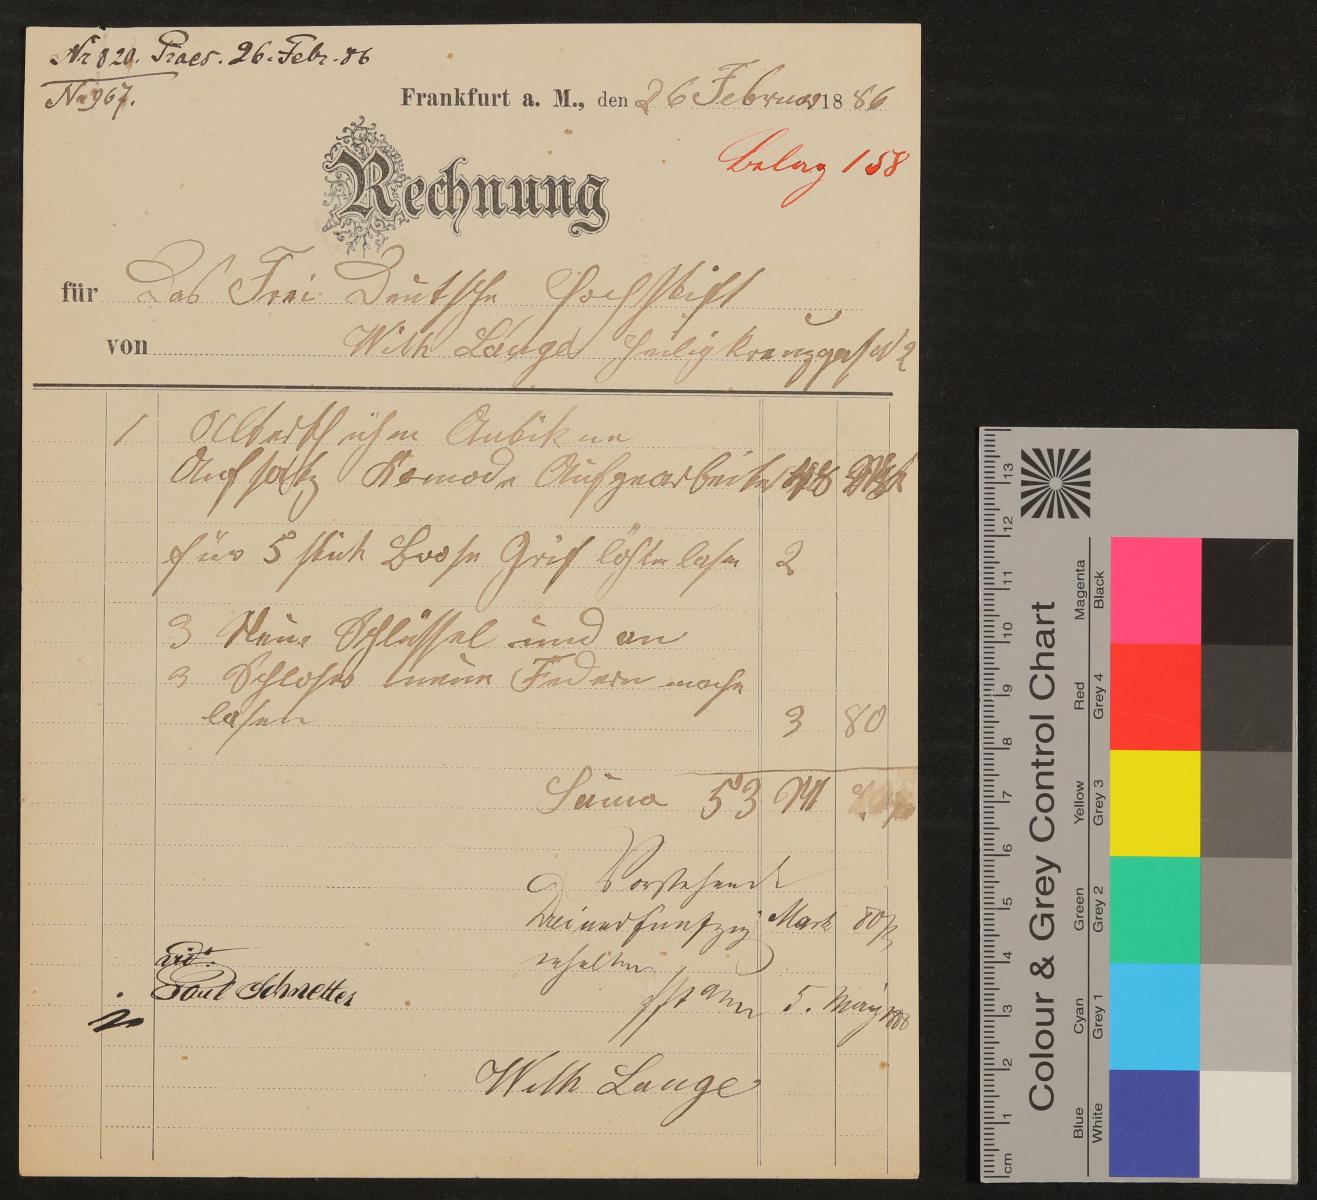 Nr 820. Praes. 26. Febr. 86
No 967.
Frankfurt a. M., den 26 Februar 1886
Belag 158
Rechnung
für Das Frei Deutsche Hochstift
von Wilh Lange Heiligkreuzgasse 2
1 Antik
Aufsatz Komode Aufgearbeitet 48 Mk
für 5 stück Grif lasen 2
3 Neue Schlüssel und an
3 Schloser neue Federn mache
lasen 3 80
Suma 53 M 80
Vorstehende
Dreiundfunfzig Mark 80 Pf
erhalten
vidt.
Paul Schmetter
Ffst a/m 5. März 1886
Wilh Lange
Colour & Grey Control Chart
Blue Cyan Green Yellow Red Magenta
White Grey 1 Grey 2 Grey 3 Grey 4 Black
cm 1 2 3 4 5 6 7 8 9 10 11 12 13